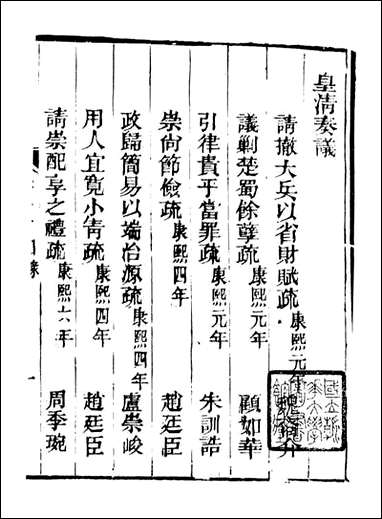 皇清奏議
請撤大兵以省財賦疏 康熙元年 魏 介
議剿楚蜀餘孽疏 康熙元年 顧如華
引律貴平當罪疏 康熙元年 朱訓誥
崇尚節儉疏 康熙四年 趙廷臣
政歸簡易以端治源疏 康熙四年 盧崇峻
用人宜寬小眚疏 康熙四年 趙廷臣
請崇配享之禮疏 康熙六年 周季琬
目錄 一